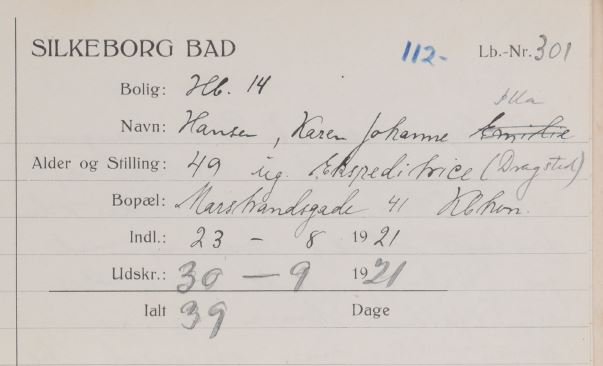 SILKEBORG BAD 112- Lb.-Nr. 301
Bolig: Hb. 14
Ella
Navn: Hansen, Karen Johanne Emilie
Alder og Stilling: 49 ug. Ekspeditrice (Dragsted)
Bopæl: Marstrandsgade 41 Kbhvn.
Indl.: 23 - 8 1921
Udskr.: 30 - 9 1921
Ialt 39 Dage